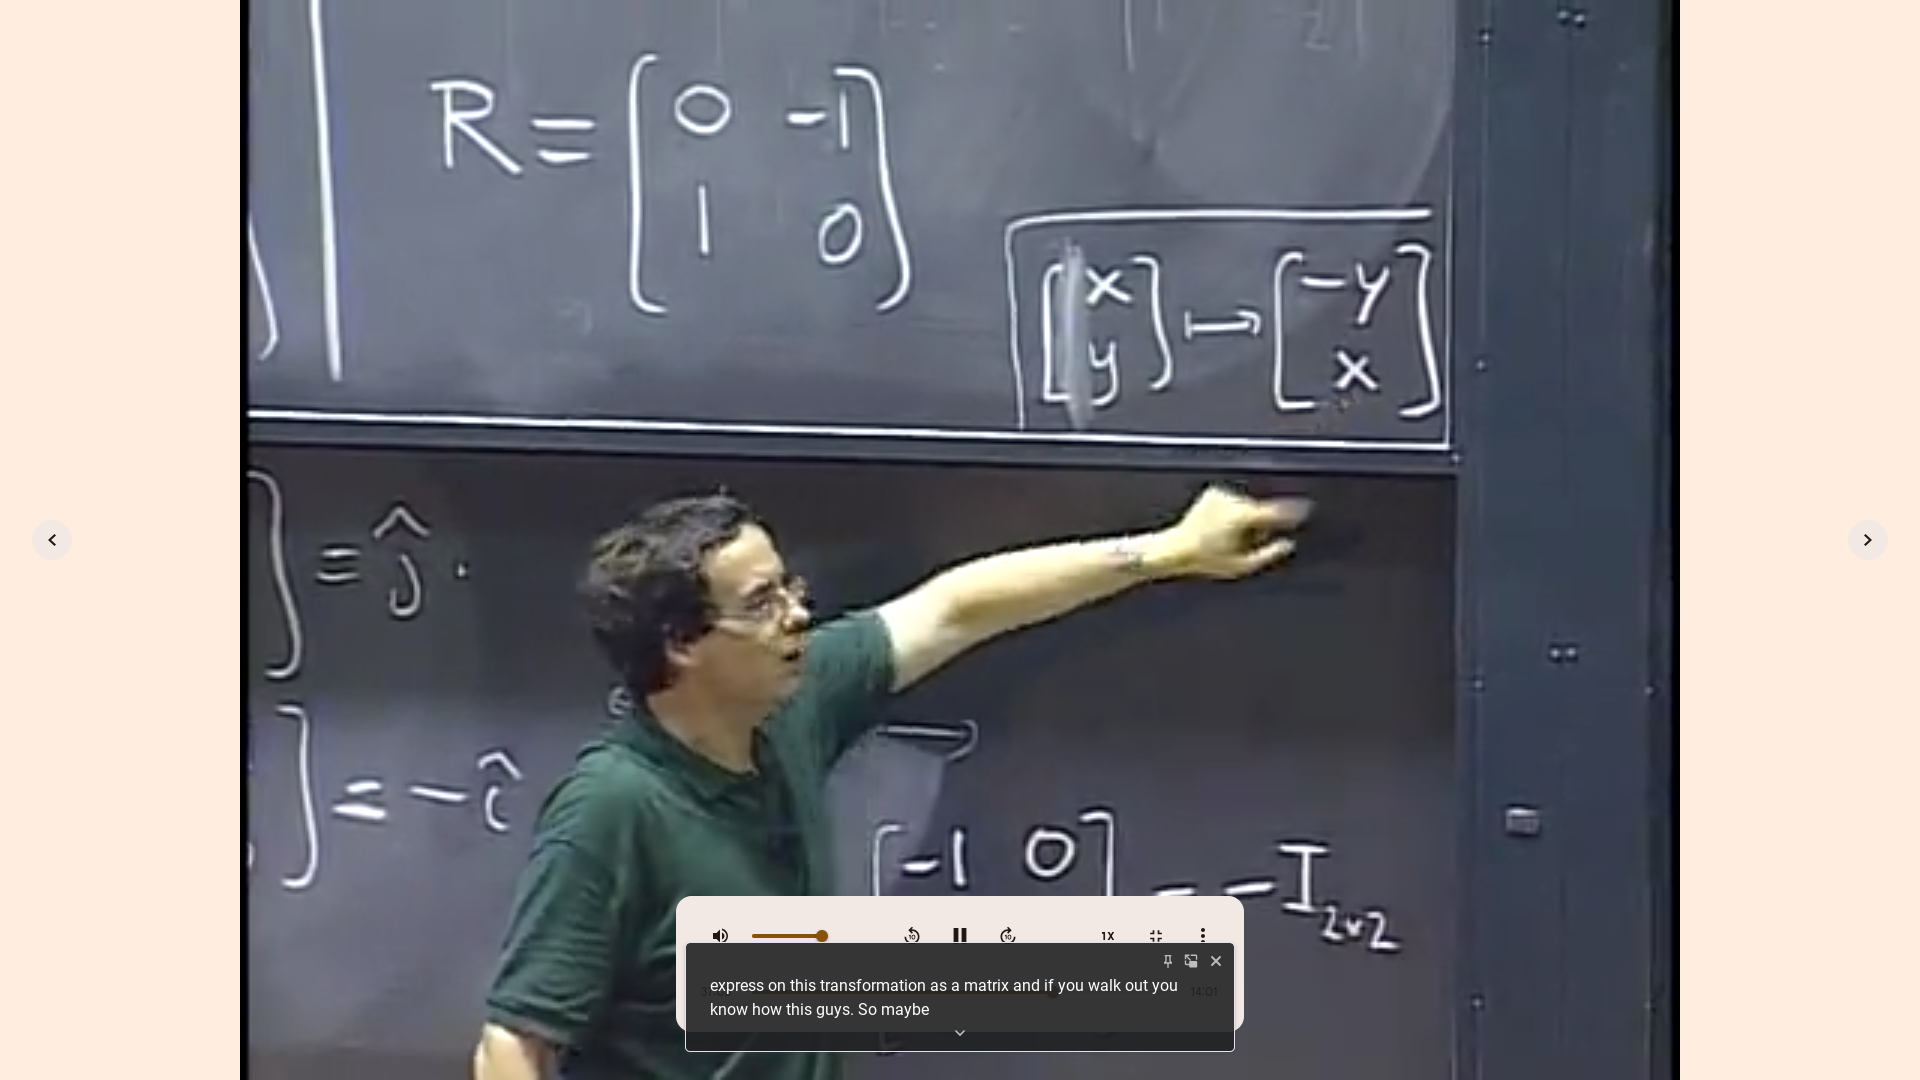 R = [ 0 -1
1 0 ]
[ x
y ] ↦ [ -y
x ]
] = ĵ .
] = - î
[ -1 0 ] = -I₂ₓ₂
1X
14:01
express on this transformation as a matrix and if you walk out you
know how this guys. So maybe